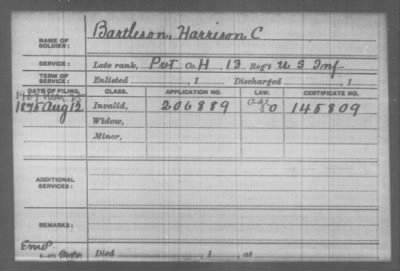 NAME OF SOLDIER: Bartleson, Harrison C
SERVICE: Late rank, Pvt Co. H, 13 Reg't U S Inf
TERM OF SERVICE: Enlisted , 1 Discharged , 1
DATE OF FILING. CLASS. APPLICATION NO. LAW. CERTIFICATE NO.
1875 Aug 12 Invalid, 206889 145809
Widow,
Minor,
ADDITIONAL SERVICES:
REMARKS:
Died , 1 , at